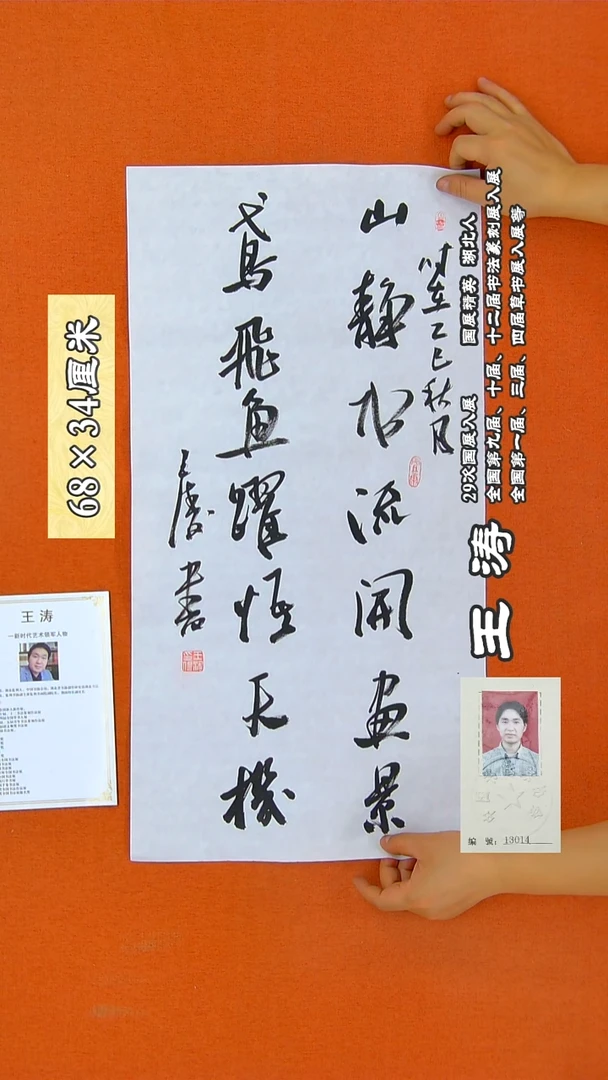 山静水流開畫景
鳶飛魚躍悟天機
时在乙巳秋月
王涛書
68×34厘米
王涛
29次国展入展 国展精英 湖北人
全国第九届、十届、十二届书法篆刻展入展
全国第一届、三届、四届草书展入展等
王 涛
一新时代艺术领军人物
13014